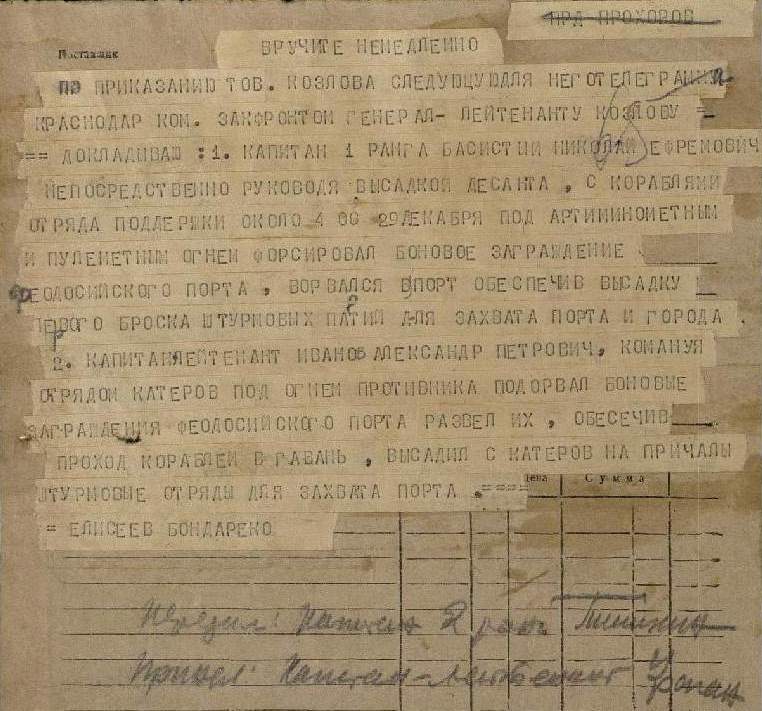 ПРД ПРОХОРОВ
Поставщик
ВРУЧИТЕ НЕМЕДЛЕННО
ПО ПРИКАЗАНИЮ ТОВ. КОЗЛОВА СЛЕДУЮЩУЮДЛЯ НЕГОТЕЛЕГРАММУ
КРАСНОДАР КОМ. ЗАКФРОНТОМ ГЕНЕРАЛ- ЛЕЙТЕНАНТУ КОЗЛОВУ =
== ДОКЛАДЫВАЮ :1. КАПИТАН 1 РАНГА БАСИСТЫЙ НИКОЛАЙ ЕФРЕМОВИЧ
НЕПОСРЕДСТВЕННО РУКОВОДЯ ВЫСАДКОЙ ДЕСАНТА , С КОРАБЛЯМИ
ОТРЯДА ПОДДЕРЖКИ ОКОЛО 4 00 29 ДЕКАБРЯ ПОД АРТИМИНОМЕТНЫМ
И ПУЛЕМЕТНЫМ ОГНЕМ ФОРСИРОВАЛ БОНОВОЕ ЗАГРАЖДЕНИЕ
ФЕОДОСИЙСКОГО ПОРТА , ВОРВАЛСЯ ВПОРТ ОБЕСПЕЧИВ ВЫСАДКУ
ПЕРВОГО БРОСКА ШТУРМОВЫХ ПАРТИЙ ДЛЯ ЗАХВАТА ПОРТА И ГОРОДА .
2. КАПИТАНЛЕЙТЕНАНТ ИВАНОВ АЛЕКСАНДР ПЕТРОВИЧ, КОМАНУЯ
ОТРЯДОМ КАТЕРОВ ПОД ОГНЕМ ПРОТИВНИКА ПОДОРВАЛ БОНОВЫЕ
ЗАГРАЖДЕНИЯ ФЕОДОСИЙСКОГО ПОРТА РАЗВЕЛ ИХ , ОБЕСЕЧИВ
ПРОХОД КОРАБЛЕЙ В ГАВАНЬ , ВЫСАДИЛ С КАТЕРОВ НА ПРИЧАЛЫ
ШТУРМОВЫЕ ОТРЯДЫ ДЛЯ ЗАХВАТА ПОРТА .====
Цена Сумма
= ЕЛИСЕЕВ БОНДАРЕКО
Капитан 2 ранг
Принял: Капитан-Лейтенант